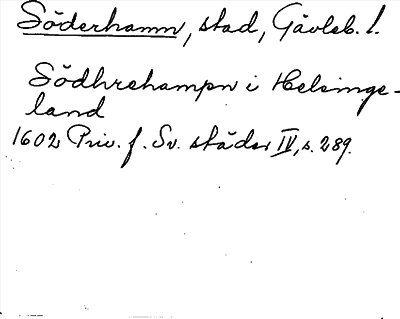 Söderhamn, stad, Gävleb. l.
Södhrehampn i Helsinge-
land
1602 Priv. f. Sv. städer IV, s. 289.